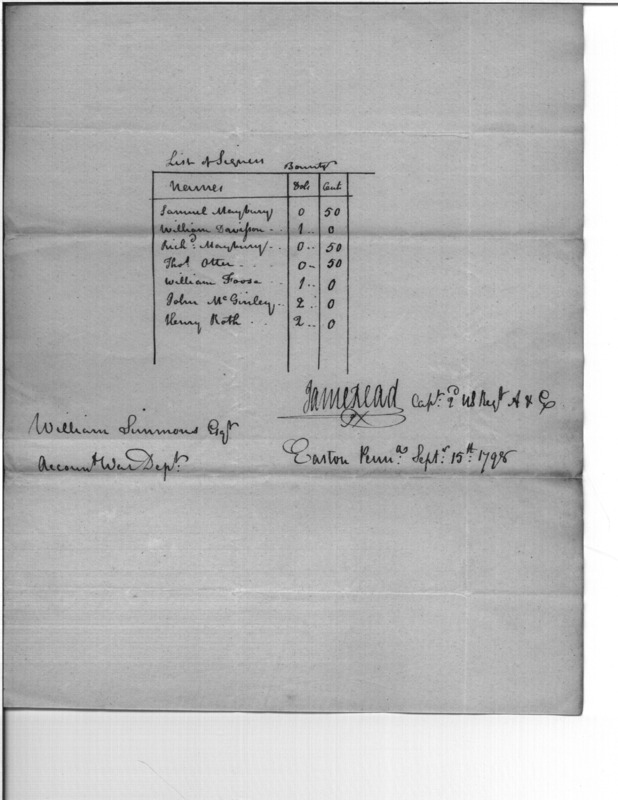 List of Signers Bounty
Names Dols Cent.
Samuel Maybury 0 50
William Davisson .. 1 .. 0
Rich.d Maybury .. 0 .. 50
Tho.s Otter .... 0 .. 50
William Foose .. 1 .. 0
John McGinley .. 2 .. 0
Henry Roth .. 2 .. 0
James Read Capt. 2.d US Reg.t A & E
William Simmons Esq.r
Easton Penn.a Sept.r 15.th 1798
Account War Dep.t